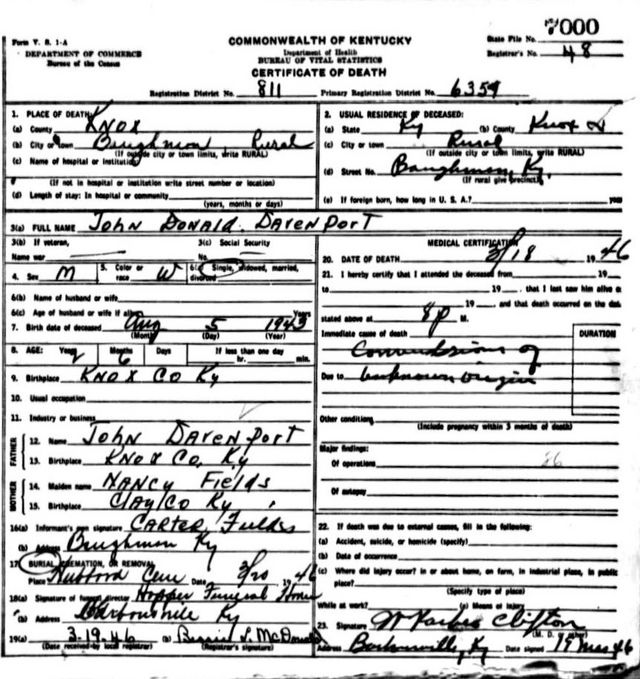 7000
Form V. S. 1-A
DEPARTMENT OF COMMERCE
Bureau of the Census
COMMONWEALTH OF KENTUCKY
Department of Health
BUREAU OF VITAL STATISTICS
CERTIFICATE OF DEATH
State File No.
Registrar's No. 48
Registration District No. 811 Primary Registration District No. 6359
1. PLACE OF DEATH
(a) County Knox
(b) City or town Baughman Rural
(If outside city or town limits, write RURAL)
(c) Name of hospital or institution
(If not in hospital or institution write street number or location)
(d) Length of stay: In hospital or community
(years, months or days)
2. USUAL RESIDENCE OF DECEASED:
(a) State Ky (b) County Knox
(c) City or town Rural
(If outside city or town limits, write RURAL)
(d) Street No. Baughman, Ky.
(If rural give precinct)
(e) If foreign born, how long in U. S. A.? years
3(a) FULL NAME John Donald Davenport
3(b) If veteran,
Name war
3(c) Social Security
No.
4. Sex M 5. Color or race W 6(a) Single, widowed, married, divorced
6(b) Name of husband or wife
6(c) Age of husband or wife if alive Years
7. Birth date of deceased Aug 5 1943
(Month) (Day) (Year)
8. AGE: Years 2 Months 6 Days If less than one day
hr. min.
9. Birthplace Knox Co Ky
10. Usual occupation
11. Industry or business
FATHER
12. Name John Davenport
13. Birthplace Knox Co. Ky
MOTHER
14. Maiden name Nancy Fields
15. Birthplace Clay Co Ky
16(a) Informant's own signature Carter Fields
(b) Address Baughman Ky
17. BURIAL, CREMATION, OR REMOVAL
Place Cem Date 3/20 1946
18(a) Signature of funeral director Hopper Funeral Home
(b) Address Barbourville Ky
19(a) 3-19-46 (b)
(Date received by local registrar) (Registrar's signature)
MEDICAL CERTIFICATION
20. DATE OF DEATH 3/18 1946
21. I hereby certify that I attended the deceased from 19
to 19 , that I last saw him alive o
19 , and that death occurred on the dat
stated above at 8 P M.
Immediate cause of death
DURATION
Convulsions of
Due to unknown origin
Other conditions
(Include pregnancy within 3 months of death)
Major findings:
Of operations
86
Of autopsy
22. If death was due to external causes, fill in the following:
(a) Accident, suicide, or homicide (specify)
(b) Date of occurrence
(c) Where did injury occur? in or about home, on farm, in industrial place, in public
place?
(Specify type of place)
While at work? (e) Means of injury
23. Signature Clifton
(M. D. or other)
Address Barbourville, Ky Date signed 19 Mar 46